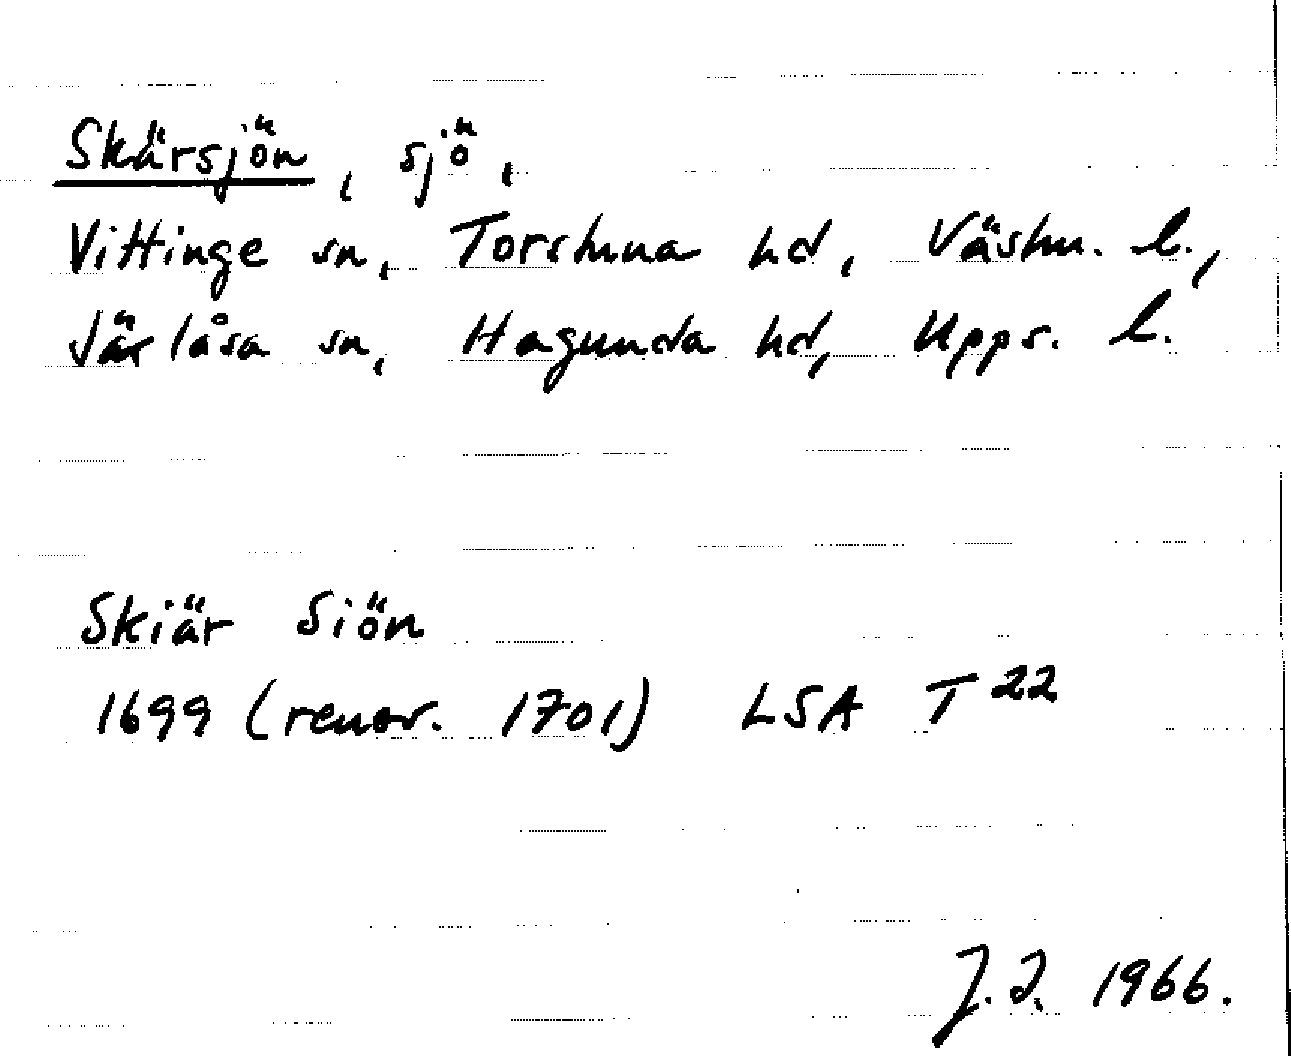 Skärsjön, sjö,
Vittinge sn, Torstuna hd, Västm. l.,
Järlåsa sn, Hagunda hd, Upps. l.
Skiär Siön
1699 (renov. 1701) LSA T 22
J.I. 1966.